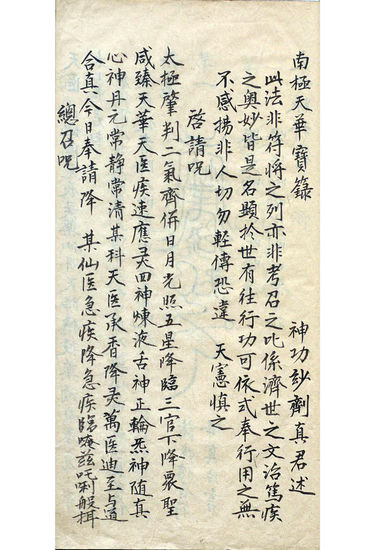 南極天華寶籙
神功妙劑真君述
此法非符將之列亦非考召之比係濟世之文治篤疾
之奧妙皆是名顯於世有往行功可依式奉行用之無
不感揚非人切勿輕傳恐違 天憲慎之
啓請咒
太極肇判二氣齊併日月光照五星降臨三官下降眾聖
咸臻天華天医疾速應灵四神煉液舌神正輪炁神隨真
心神丹元常静常清某科天医承香降灵萬医迪至与道
合真今日奉請降 某仙医急疾降急疾臨唵茲吒唎般揖
總召咒